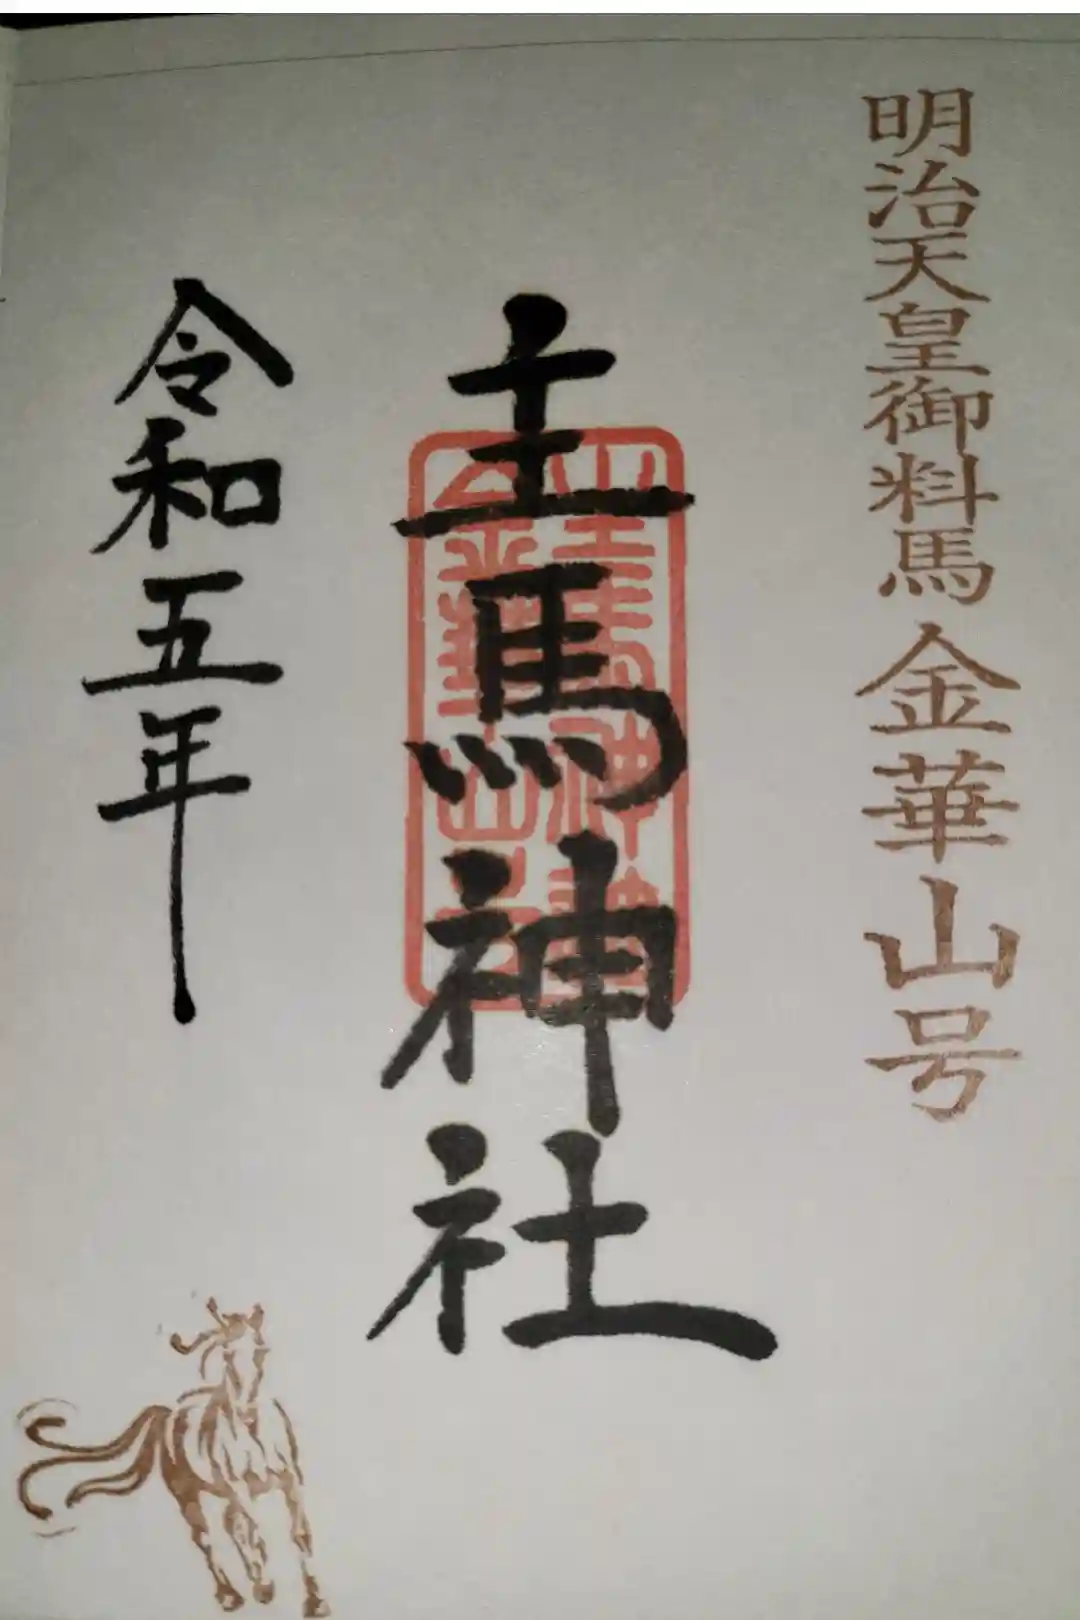 明治天皇御料馬 金華山号
主馬神社
令和五年
主馬神社
金華山号